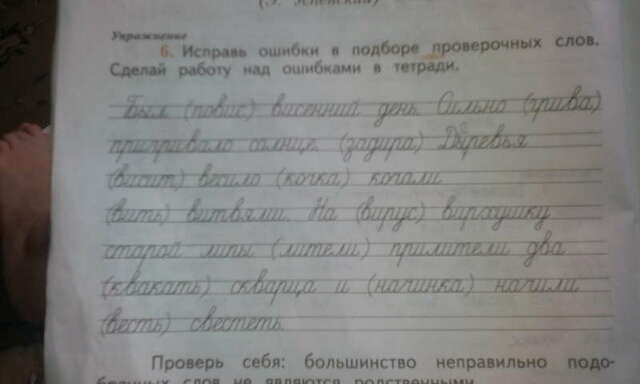 (Э. Успенский)
Упражнение
6. Исправь ошибки в подборе проверочных слов.
Сделай работу над ошибками в тетради.
Был (повис) висенний день. Сильно (грива)
пригривало солнце. (задира) Диревья
(висит) весило (кочка) кочали
(вить) витвями. На (вирус) вирхушку
старой липы (лители) прилители два
(квакать) скварца и (начинка) начили
(весть) свестеть.
Проверь себя: большинство неправильно подо-
бранных слов не являются родственными.